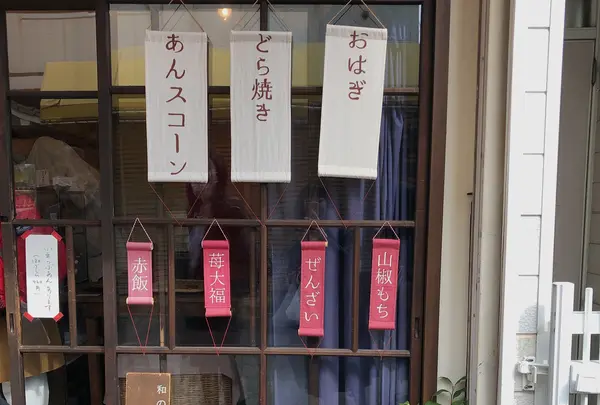 おはぎ
どら焼き
あんスコーン
山椒もち
ぜんざい
苺大福
赤飯
和の